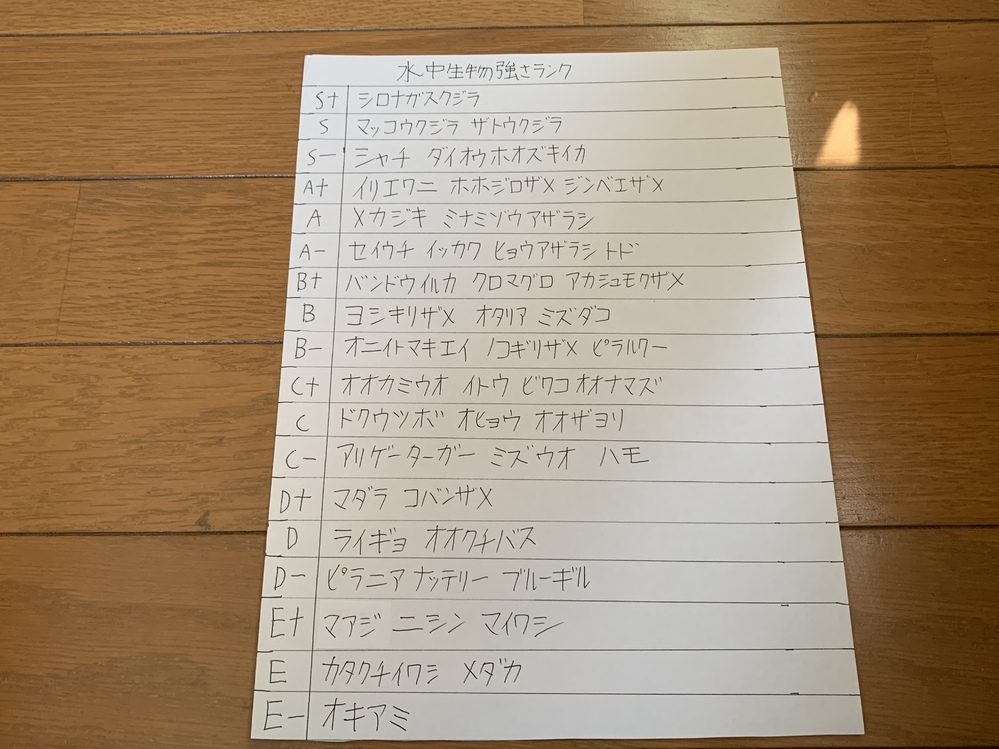 水中生物強さランク
S+ シロナガスクジラ
S マッコウクジラ ザトウクジラ
S− シャチ ダイオウホオズキイカ
A+ イリエワニ ホホジロザメ ジンベエザメ
A メカジキ ミナミゾウアザラシ
A− セイウチ イッカク ヒョウアザラシ トド
B+ バンドウイルカ クロマグロ アカシュモクザメ
B ヨシキリザメ オタリア ミズダコ
B− オニイトマキエイ ノコギリザメ ピラルクー
C+ オオカミウオ イトウ ビワコオオナマズ
C ドクウツボ オヒョウ オオザヨリ
C− アリゲーターガー ミズウオ ハモ
D+ マダラ コバンザメ
D ライギョ オオクチバス
D− ピラニアナッテリー ブルーギル
E+ マアジ ニシン マイワシ
E カタクチイワシ メダカ
E− オキアミ